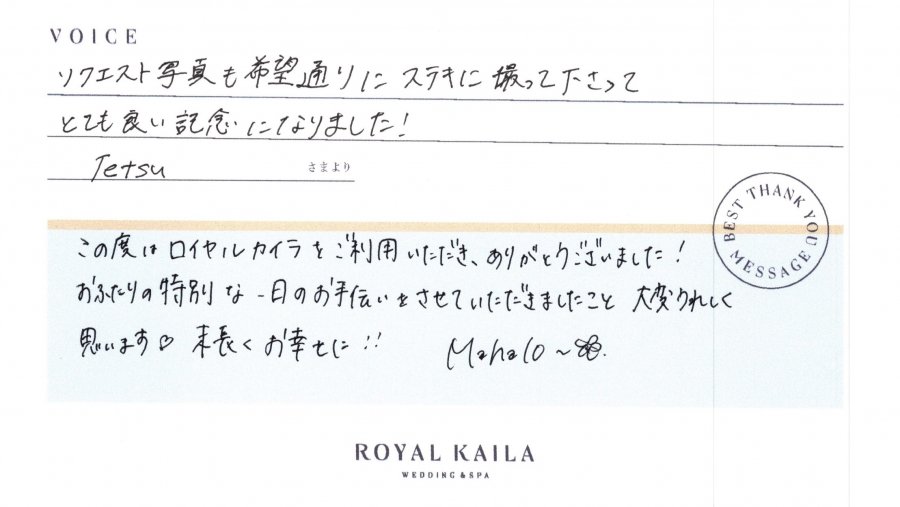 VOICE
リクエスト写真も希望通りにステキに撮って下さって
とても良い記念になりました!
Tetsu さまより
BEST THANK YOU MESSAGE
この度はロイヤルカイラをご利用いただき、ありがとうございました!
おふたりの特別な一日のお手伝いをさせていただきましたこと 大変うれしく
思います♡ 末長くお幸せに!! Mahalo~
ROYAL KAILA
WEDDING & SPA